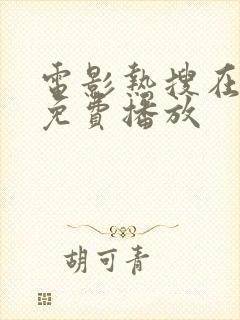 電影熱搜在
免費播放
胡可青